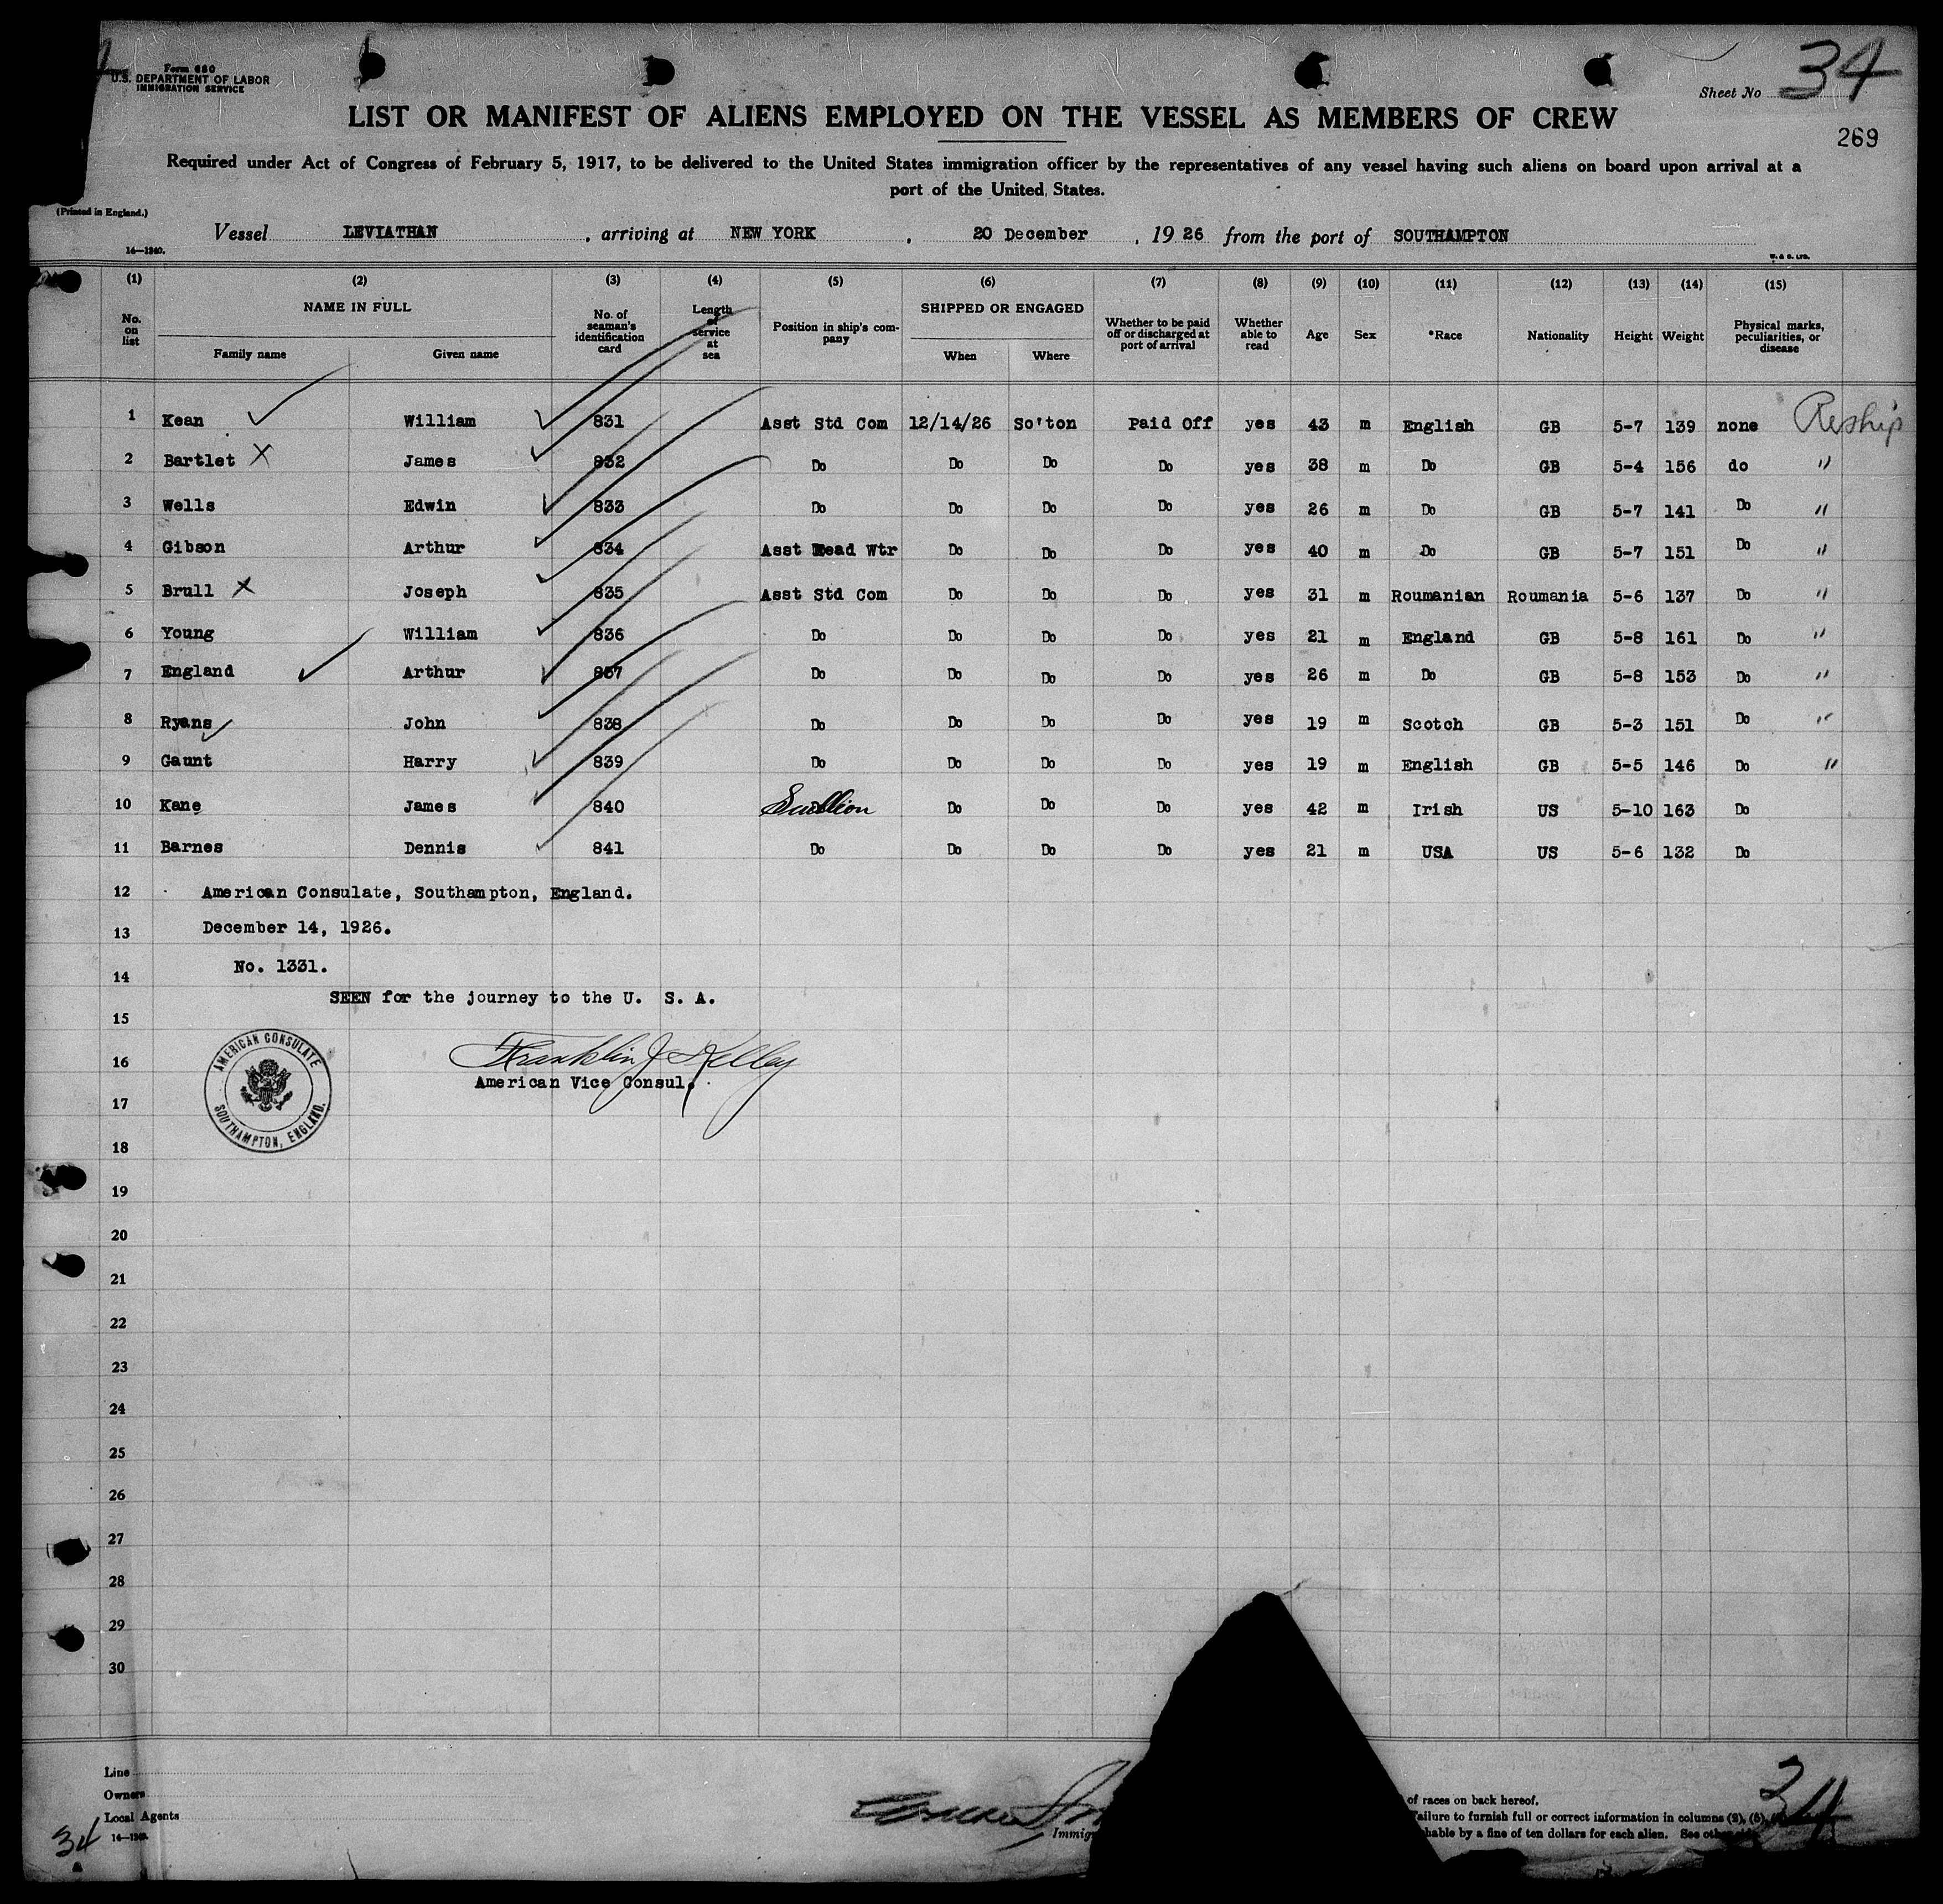 Form 680
U.S. DEPARTMENT OF LABOR
IMMIGRATION SERVICE
Sheet No 34
LIST OR MANIFEST OF ALIENS EMPLOYED ON THE VESSEL AS MEMBERS OF CREW
269
Required under Act of Congress of February 5, 1917, to be delivered to the United States immigration officer by the representatives of any vessel having such aliens on board upon arrival at a
port of the United States.
(Printed in England.)
Vessel LEVIATHAN , arriving at NEW YORK , 20 December , 1926 from the port of SOUTHAMPTON
14—1240.
W. & G. LTD.
(1) (2) (3) (4) (5) (6) (7) (8) (9) (10) (11) (12) (13) (14) (15)
No. on list NAME IN FULL Family name Given name No. of seaman's identification card Length of service at sea Position in ship's company SHIPPED OR ENGAGED When Where Whether to be paid off or discharged at port of arrival Whether able to read Age Sex *Race Nationality Height Weight Physical marks, peculiarities, or disease
1 Kean William 831 Asst Std Com 12/14/26 So'ton Paid Off yes 43 m English GB 5-7 139 none Reship
2 Bartlet X James 832 Do Do Do Do yes 38 m Do GB 5-4 156 do "
3 Wells Edwin 833 Do Do Do Do yes 26 m Do GB 5-7 141 Do "
4 Gibson Arthur 834 Asst Head Wtr Do Do Do yes 40 m Do GB 5-7 151 Do "
5 Brull X Joseph 835 Asst Std Com Do Do Do yes 31 m Roumanian Roumania 5-6 137 Do "
6 Young William 836 Do Do Do Do yes 21 m England GB 5-8 161 Do "
7 England Arthur 837 Do Do Do Do yes 26 m Do GB 5-8 153 Do "
8 Ryans John 838 Do Do Do Do yes 19 m Scotch GB 5-3 151 Do "
9 Gaunt Harry 839 Do Do Do Do yes 19 m English GB 5-5 146 Do "
10 Kane James 840 Scullion Do Do Do yes 42 m Irish US 5-10 163 Do
11 Barnes Dennis 841 Do Do Do Do yes 21 m USA US 5-6 132 Do
12 American Consulate, Southampton, England.
13 December 14, 1926.
14 No. 1331.
SEEN for the journey to the U. S. A.
15
16 Franklin J Kelley
AMERICAN CONSULATE
SOUTHAMPTON, ENGLAND.
American Vice Consul.
17
18
19
20
21
22
23
24
25
26
27
28
29
30
Line
Owners
Local Agents
14—1240.
34
Immig
of races on back hereof.
Failure to furnish full or correct information in columns (2), (5),
hable by a fine of ten dollars for each alien. See oth
34